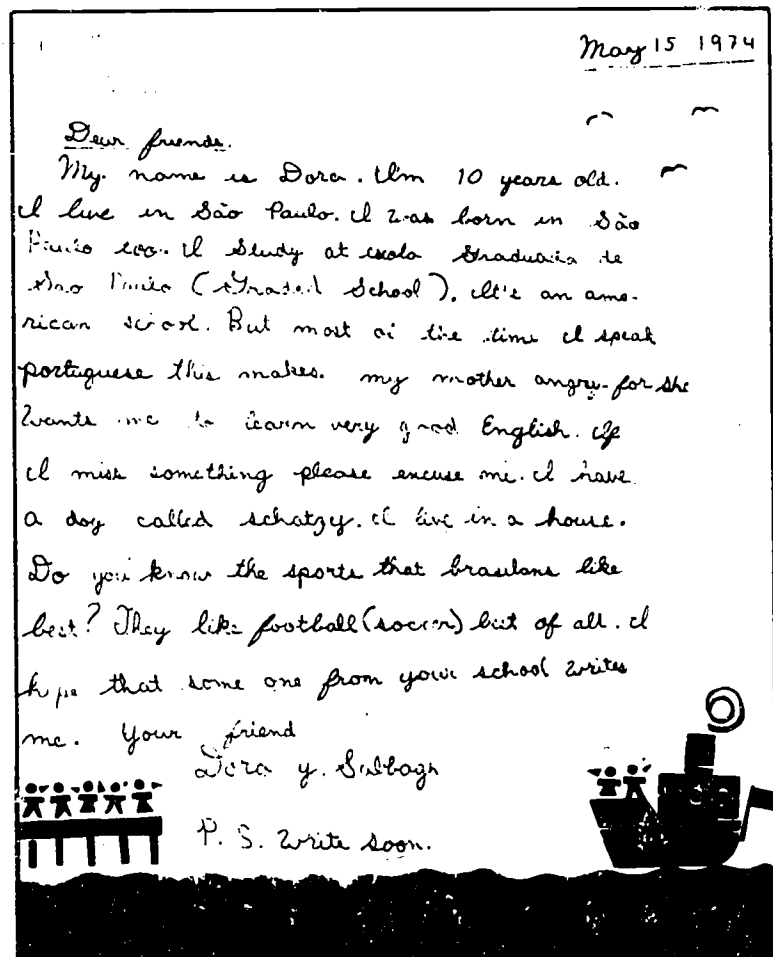 May 15 1974
Dear friends.
My name is Dora. I'm 10 years old.
I live in São Paulo. I was born in São
Paulo too. I study at escola Graduada de
São Paulo (Graded School). It's an ame-
rican school. But most of the time I speak
portuguese this makes. my mother angry for she
wants me to learn very good English. If
I miss something please excuse me. I have
a dog called schatzy. I live in a house.
Do you know the sports that brasilans like
best? They like football (soccer) best of all. I
hope that some one from your school writes
me. Your friend
Dora y.
P. S. Write soon.